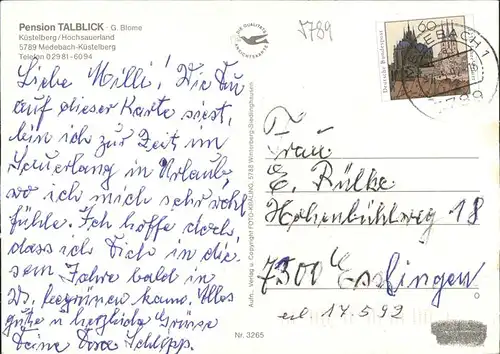 Pension TALBLICK · G. Blome
Küstelberg/Hochsauerland
5789 Medebach-Küstelberg
Telefon 0 29 81 - 60 94
Liebe Milli! Wie Du
auf dieser Karte siest,
bin ich zur Zeit im
Sauerlang in Urlaub
wo ich mich sehr wohl
fühle. Ich hoffe doch
dass ich Dich in die-
sem Jahre bald in
W. begrüsen kann. Alles
gute u herzliche Grüsse
Deine Dora Schlepp.
Aufn., Verlag u. Copyright FOTO-HÖLZING, 5788 Winterberg-Siedlinghausen
Nr. 3265
5789
60
Deutsche Bundespost
MEDEBACH 1
Frau
E. Rülke
Hohenbühlweg 18
7300 Esslingen
erl 17.5.92